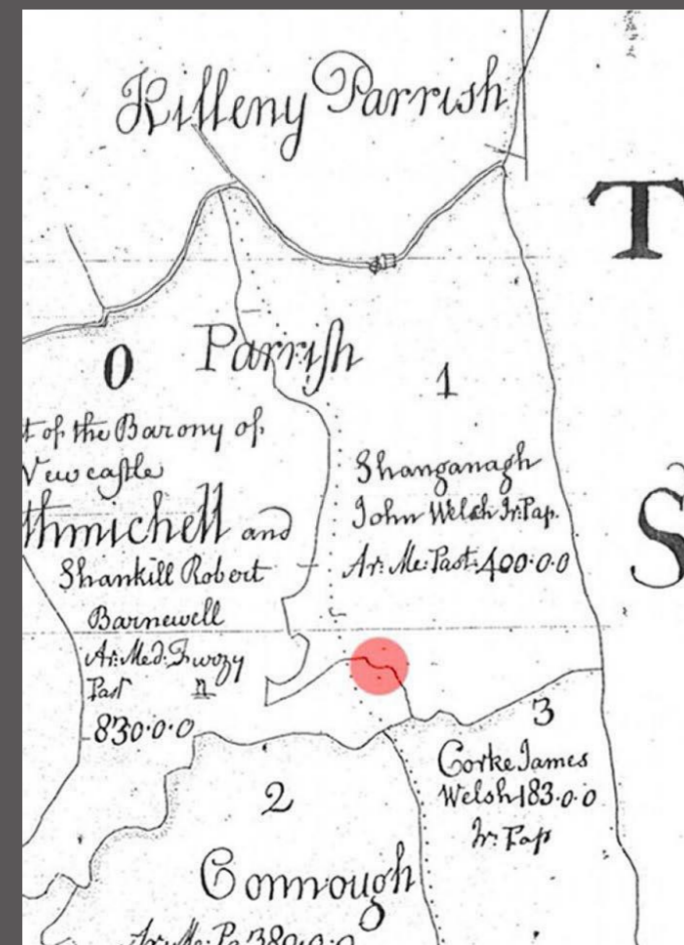 Killeny Parrish
T
0 Parrish
1
t of the Barony of
Newcastle
thmichell and
Shankill Robert
Barnewell
Ar: Med: Furzy
Past n
830·0·0
Shanganagh
John Welsh Ir: Pap.
Ar: Me: Past: 400·0·0
S
3
Corke James
Welsh 183·0·0
Ir: Pap
2
Connough
Ar: Me: Pa 380·0·0